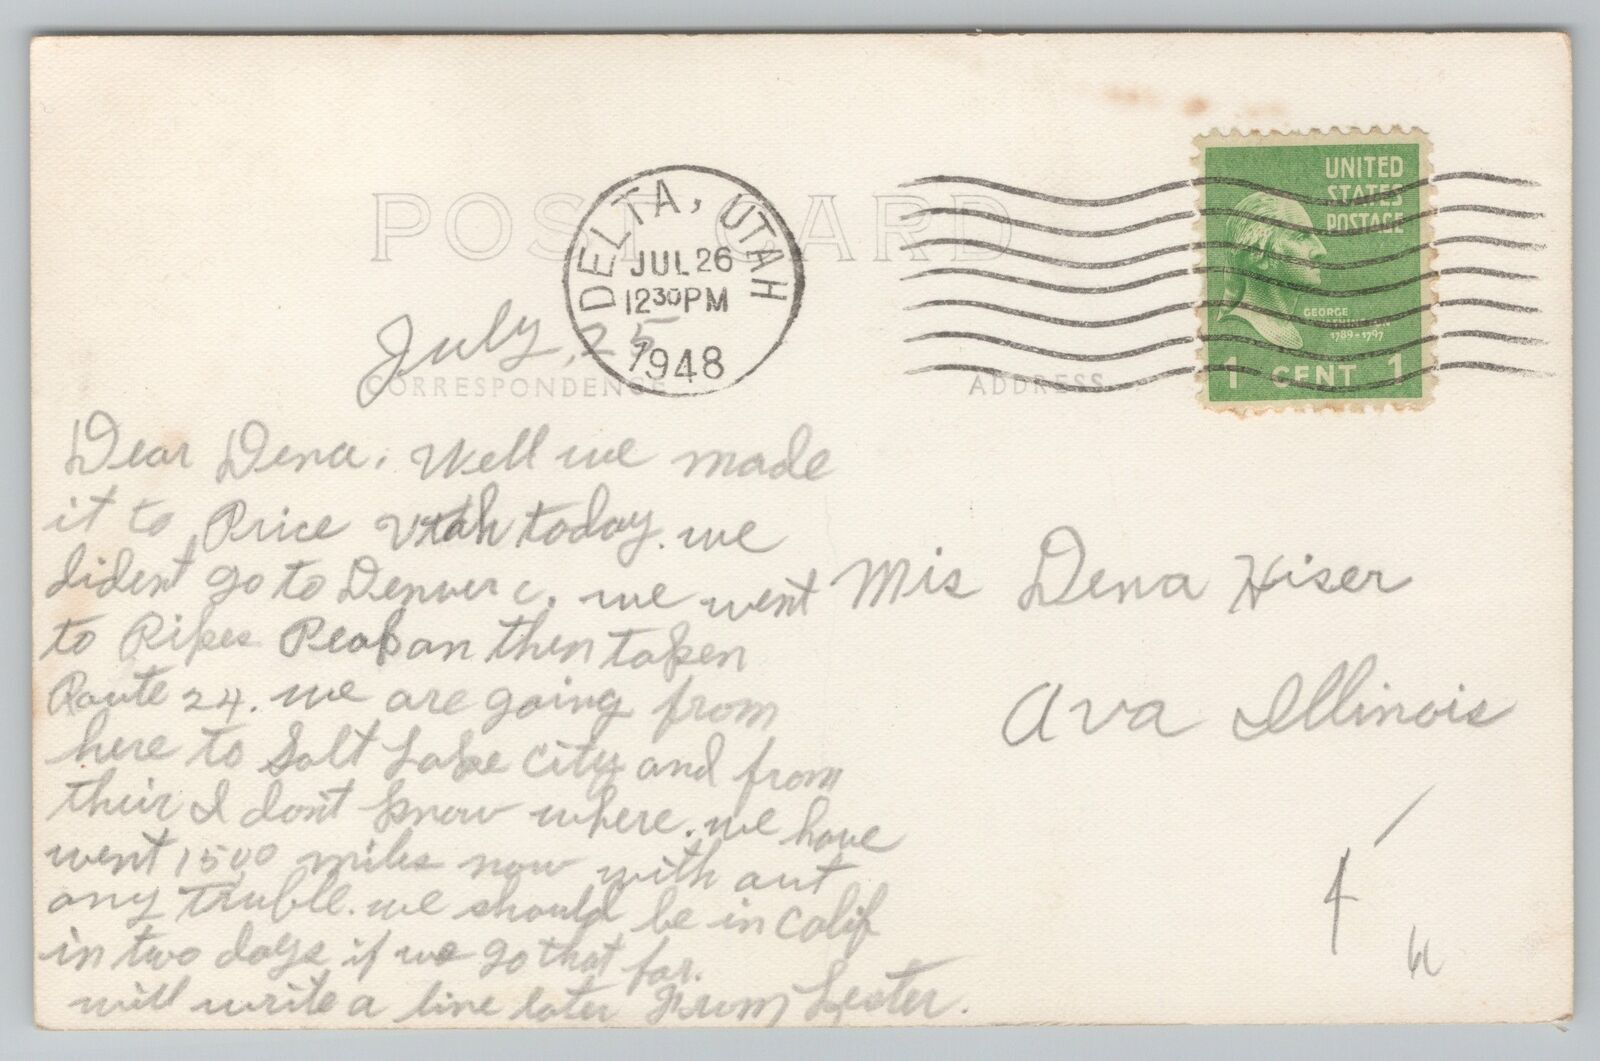 POST CARD
DELTA, UTAH
JUL 26
12 30 PM
1948
UNITED
STATES
POSTAGE
GEORGE
WASHINGTON
1789-1797
1 CENT 1
July, 25
CORRESPONDENCE
ADDRESS
Dear Dena. Well we made
it to Price Utah today. we
dident go to Denver c. we went
to Pikes Peak an then taken
Route 24. we are going from
here to Salt Lake City and from
their I don't know where. we have
went 1500 miles now with out
any truble. we should be in Calif
in two days if we go that far.
will write a line later From Lester.
Mis Dena Hiser
Ava Illinois